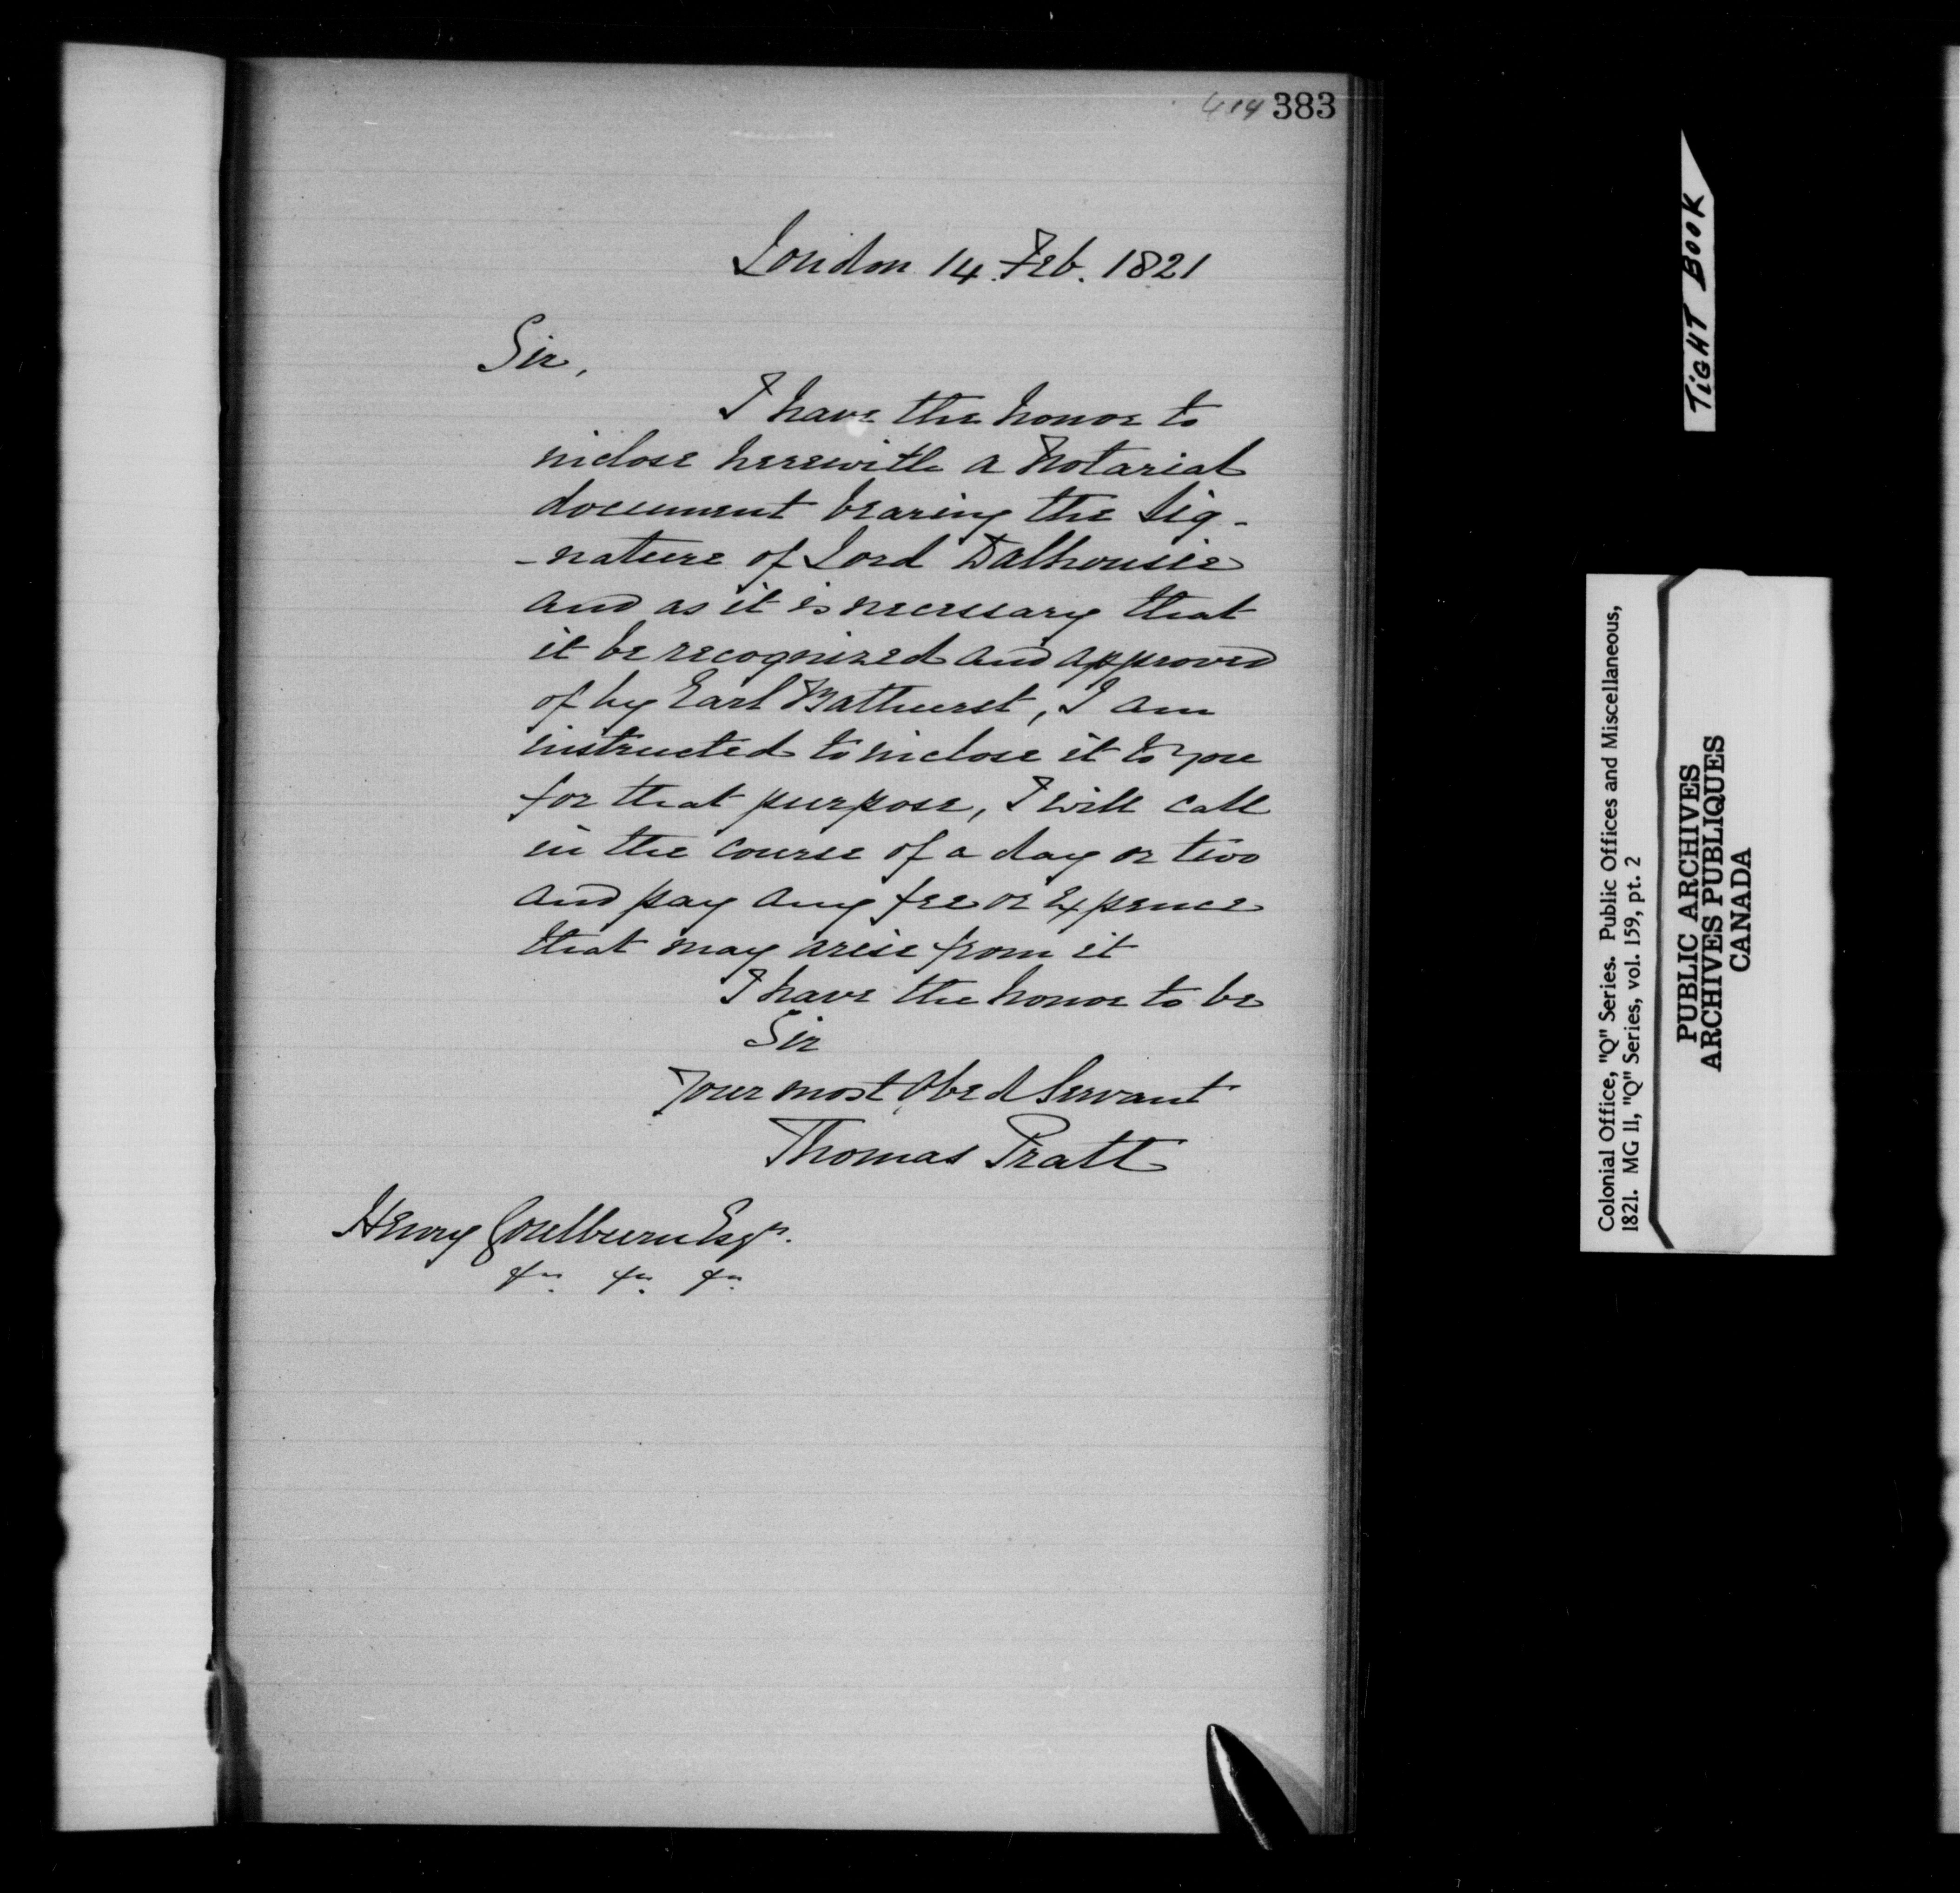 414 383
London 14 Feb. 1821
Sir,
I have the honor to
inclose herewith a Notarial
document bearing the Sig-
-nature of Lord Dalhousie
and as it is necessary that
it be recognized and approved
of by Earl Bathurst, I am
instructed to inclose it to you
for that purpose, I will call
in the course of a day or two
and pay any fee or Expence
that may arise from it
I have the honor to be
Sir
Your most Obed Servant
Thomas Pratt
Henry Goulburn Esqr.
&c. &c. &c.
TIGHT BOOK
Colonial Office, "Q" Series. Public Offices and Miscellaneous,
1821. MG 11, "Q" Series, vol. 159, pt. 2
PUBLIC ARCHIVES
ARCHIVES PUBLIQUES
CANADA